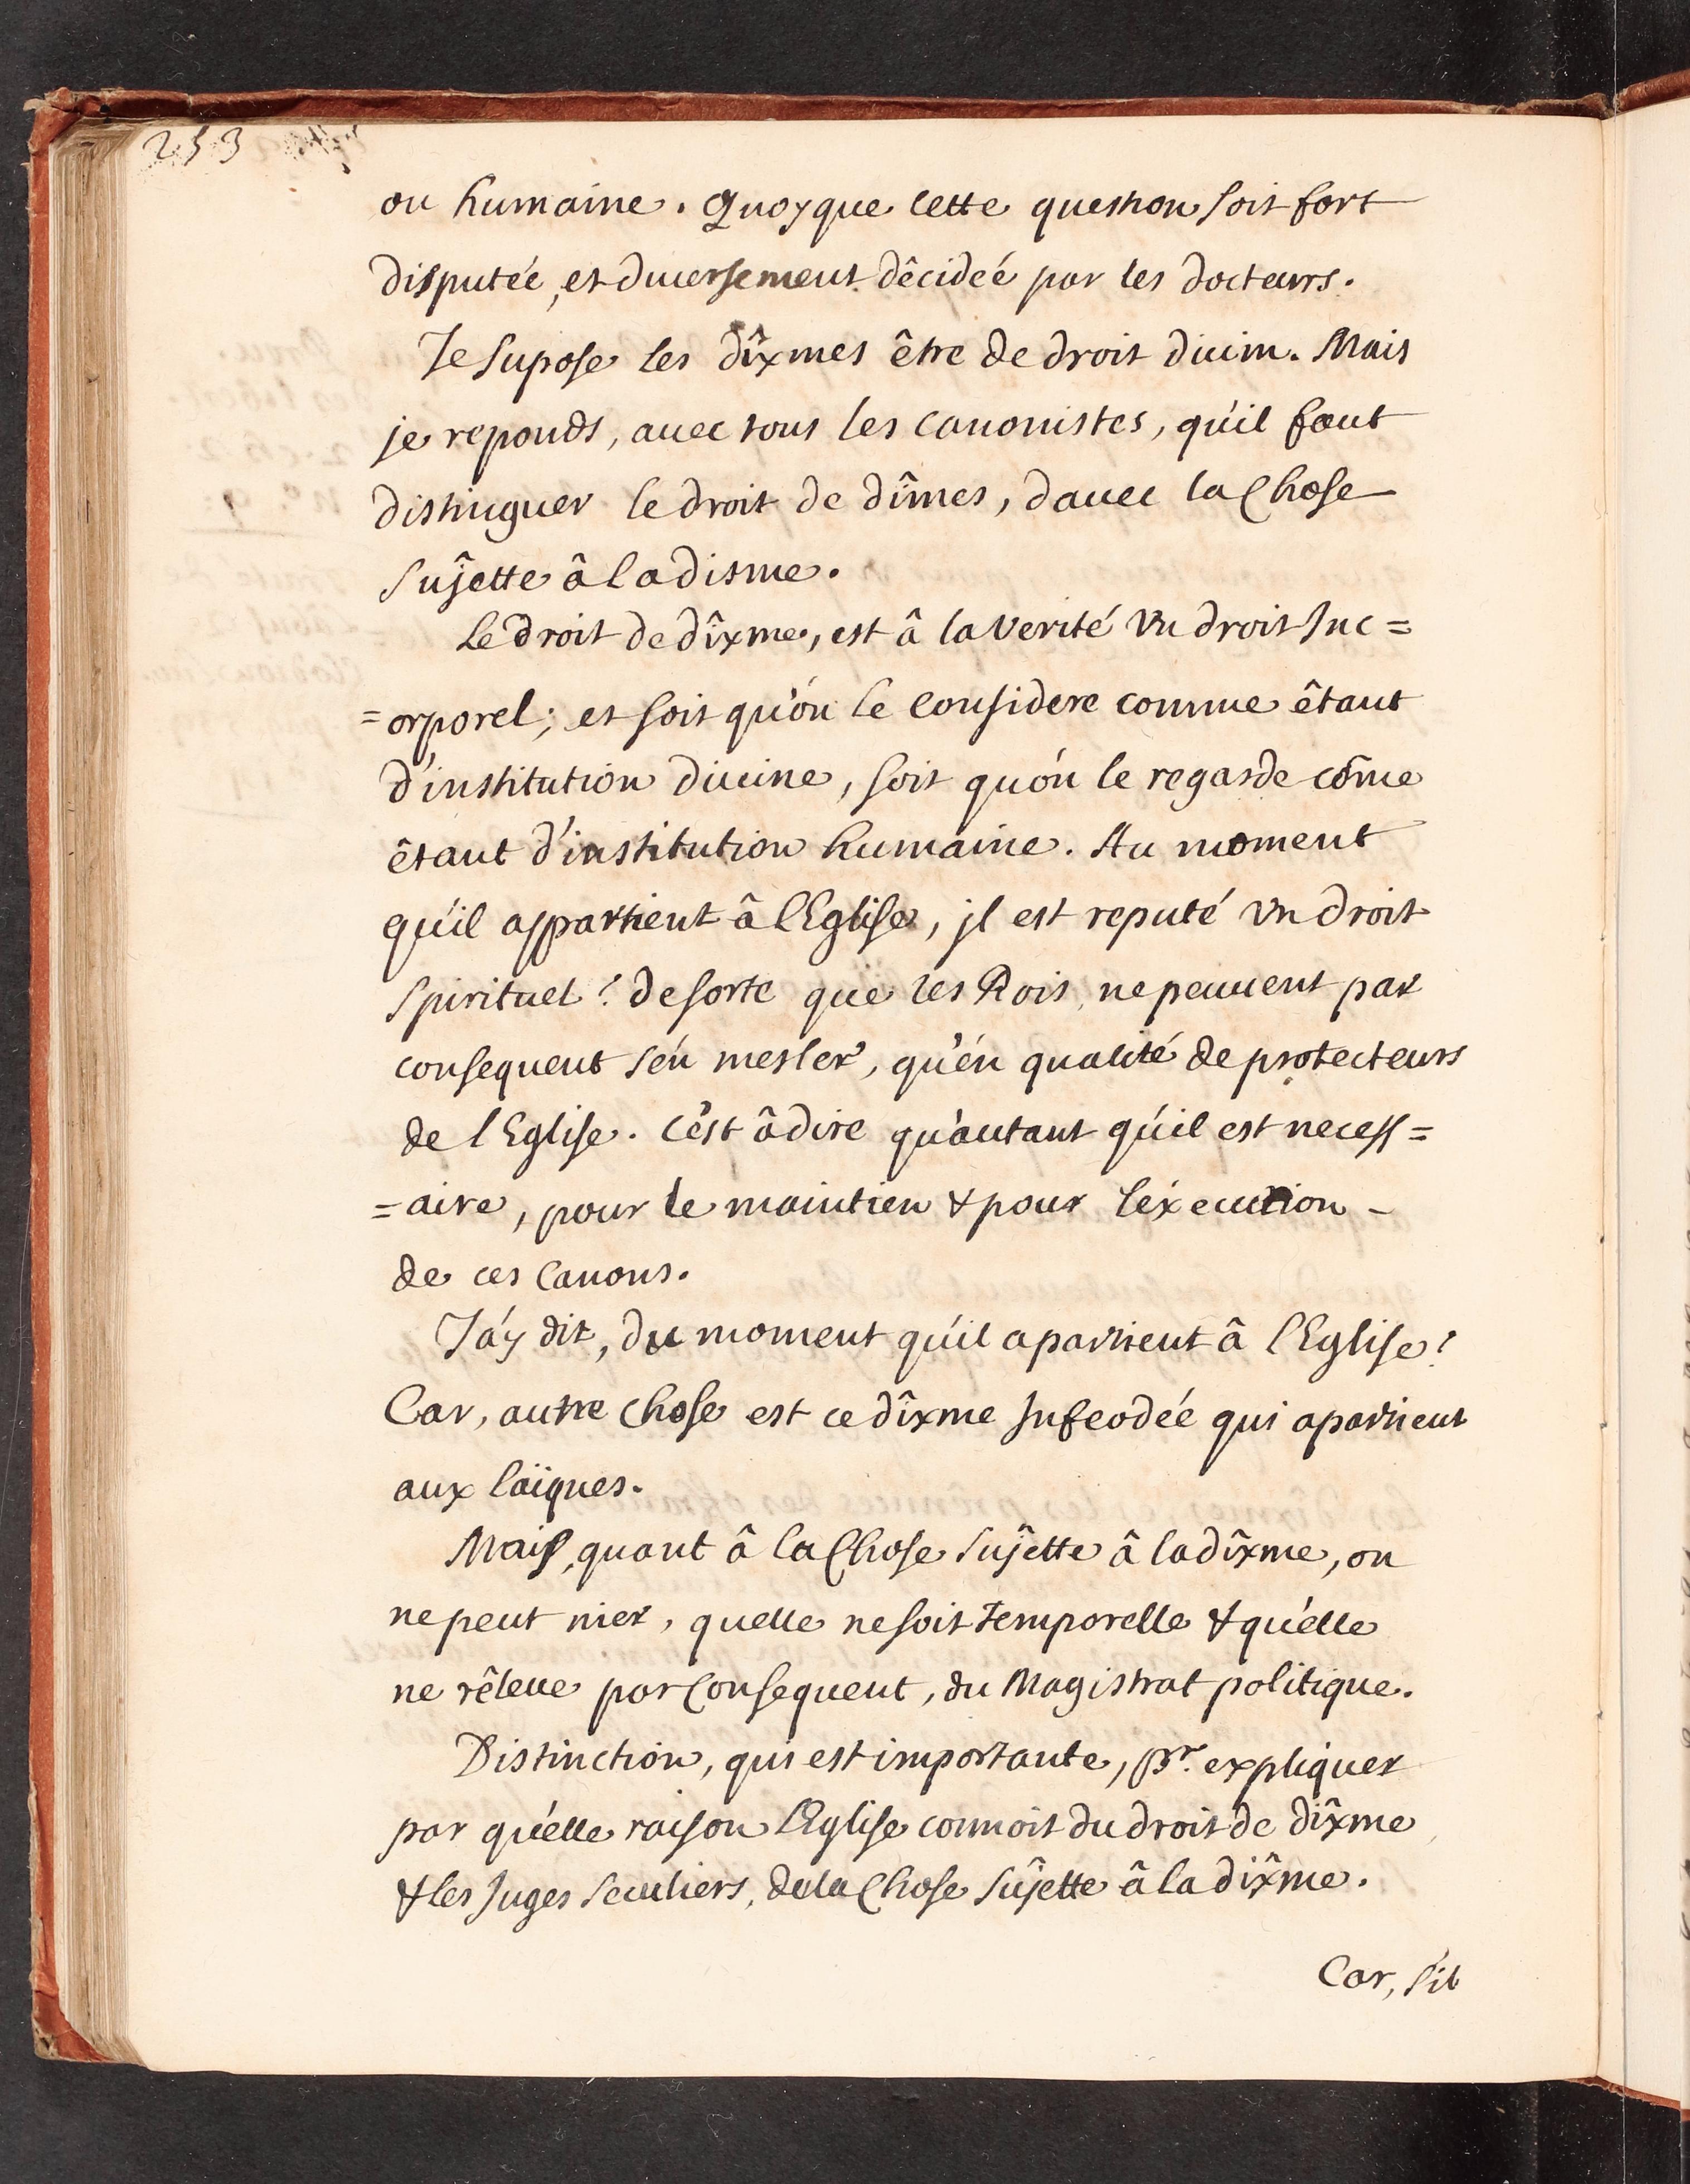 253
ou humaine. Quoyque cette question soit fort
disputée, et diuersement dêcideé par les docteurs.
Je supose les dîxmes être de droit diuin. Mais
je reponds, auec tous les canonistes, qu'il faut
distinguer le droit de dîmes, dauec la chose
sujette â la disme.
Le droit de dîxme, est â la verité vn droit Inc=
=orporel; et soit qu'on le considere comme êtant
d'institution diuine, soit qu'on le regarde cõme
êtant d'institution humaine. Au moment
qu'il appartient â l'Eglise, jl est reputé vn droit
spirituel: de sorte que les Rois, ne peuuent par
consequent s'en mesler, qu'en qualité de protecteurs
de l'Eglise. C'est â dire qu'autant qu'il est necess=
=aire, pour le maintien & pour l'éxecution -
de ces canons.
J'ay dit, du moment qu'il apartient â l'Eglise:
Car, autre chose est ce dîxme Infeodéé qui apartient
aux laïques.
Mais, quant â la chose sujette â la dîxme, on
ne peut nier, quelle ne soit temporelle & qu'elle
ne rêleue par consequent, du Magistrat politique.
Distinction, qui est importante, pr. expliquer
par qu'elle raison l'Eglise connoit du droit de dîxme
& les Juges seculiers, de la chose sujette â la dîxme.
Car, s'il